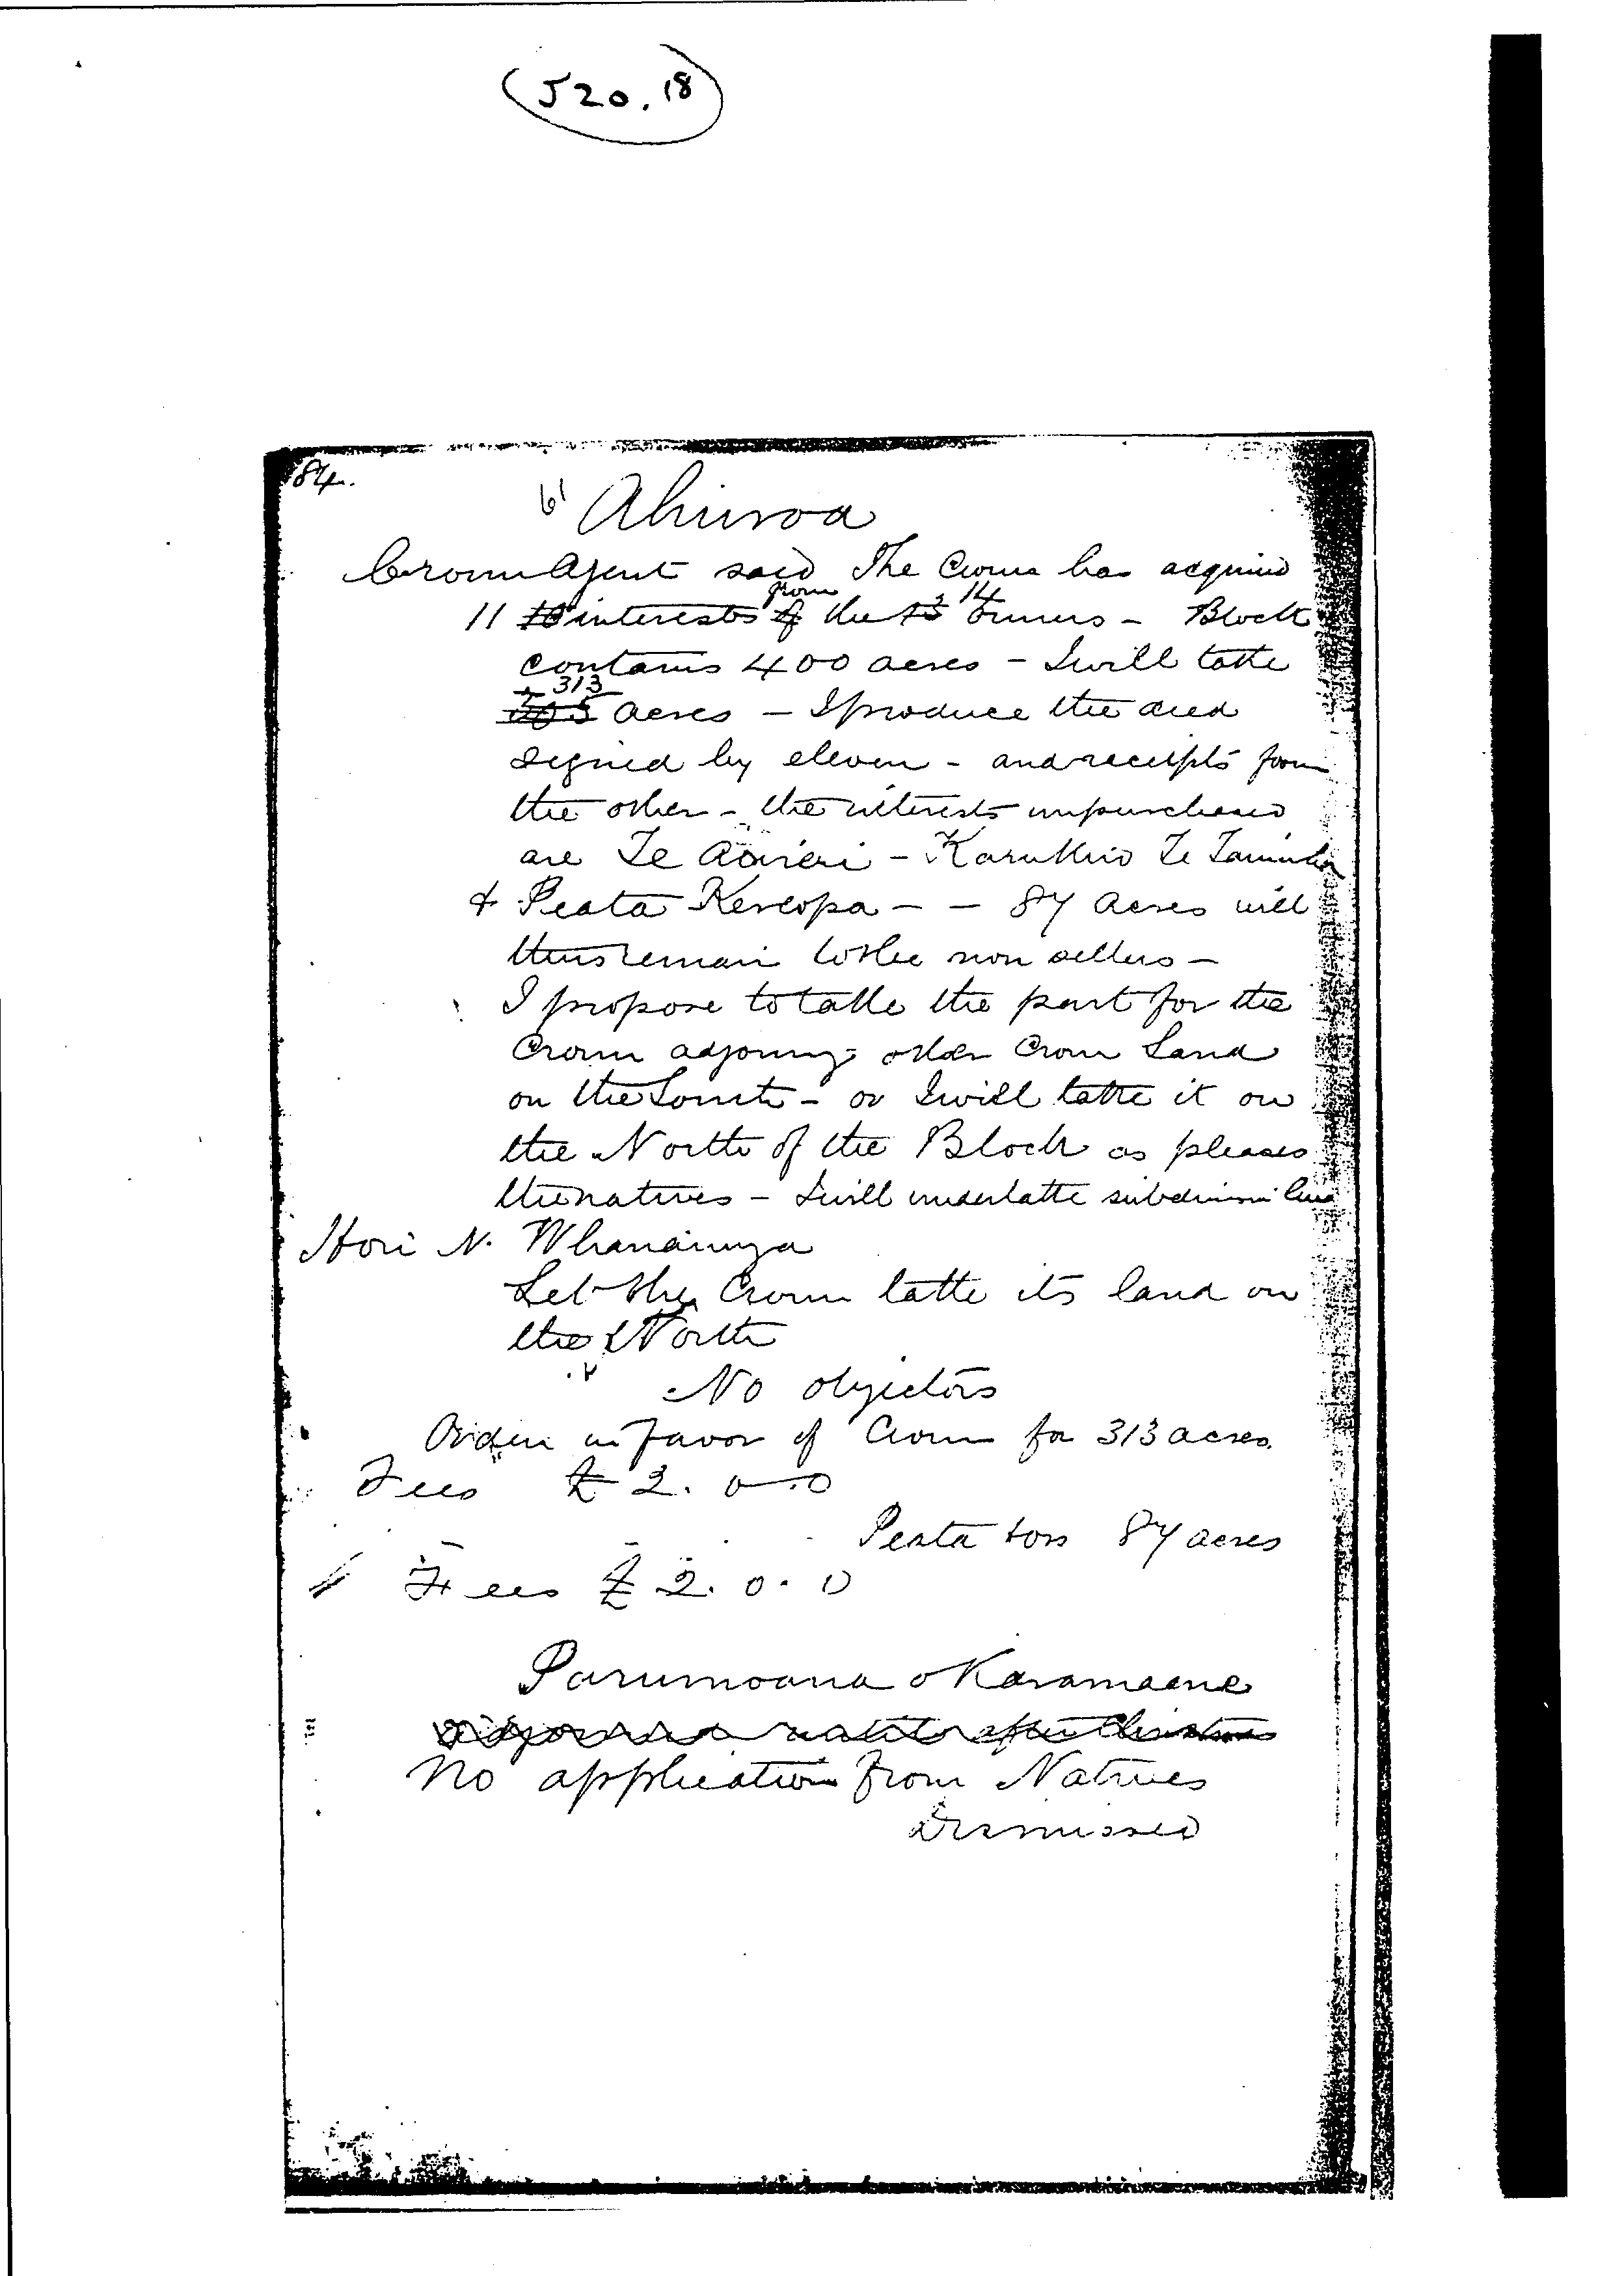 J20.18
84.
Ahuroa
Crown Agent said The Crown has acquired
11 interests from the 14 owners - Block
contains 400 acres - I will take
313
acres - I produce the deed
signed by eleven - and receipts from
the other - the interests unpurchased
are Te - Te
& Peata Kereopa - - 87 acres will
thus remain to the non sellers -
I propose to take the part for the
Crown adjoining other Crown Land
on the South - or I will take it on
the North of the Block as pleases
the natives - I will undertake subdivision line
Hori N. Whanaunga
Let the Crown take its land on
the North
No objectors
Order in favor of Crown for 313 acres
Fees £2.0.0
Peata & ors 87 acres
Fees £2.0.0
Parumoana o Karamaene
No application from Natives
Dismissed